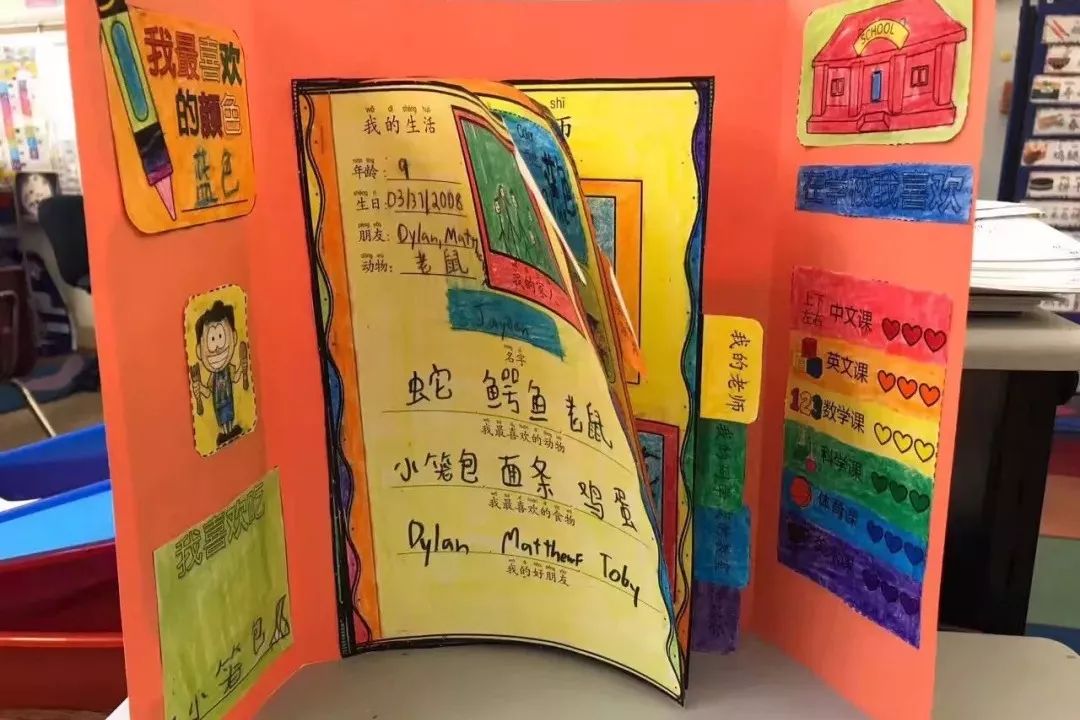 我最喜欢
的颜色
蓝色
我喜欢吃
小笼包
wǒ de shēng huó
我的生活
年龄: 9
生日: 03/31/2008
朋友: Dylan, Matth
动物: 老鼠
我的家
Jayden
名字
蛇 鳄鱼 老鼠
我最喜欢的动物
小笼包 面条 鸡蛋
我最喜欢的食物
Dylan Matthew Toby
我的好朋友
shī
师
我的老师
SCHOOL
在学校我喜欢
上下
左右
中文课
英文课
123 数学课
科学课
体育课